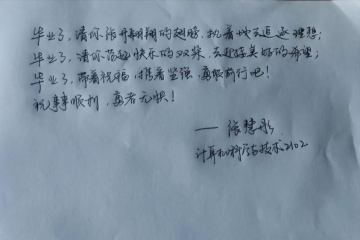 毕业了,请你张开翱翔的翅膀,执着地去追逐理想;
毕业了,请你荡起快乐的双桨,去起美好的希望;
毕业了,带着祝福,携着坚强,勇敢前行吧!
祝事事顺利,毫无
——张慧彤
计算机科学与技术2102